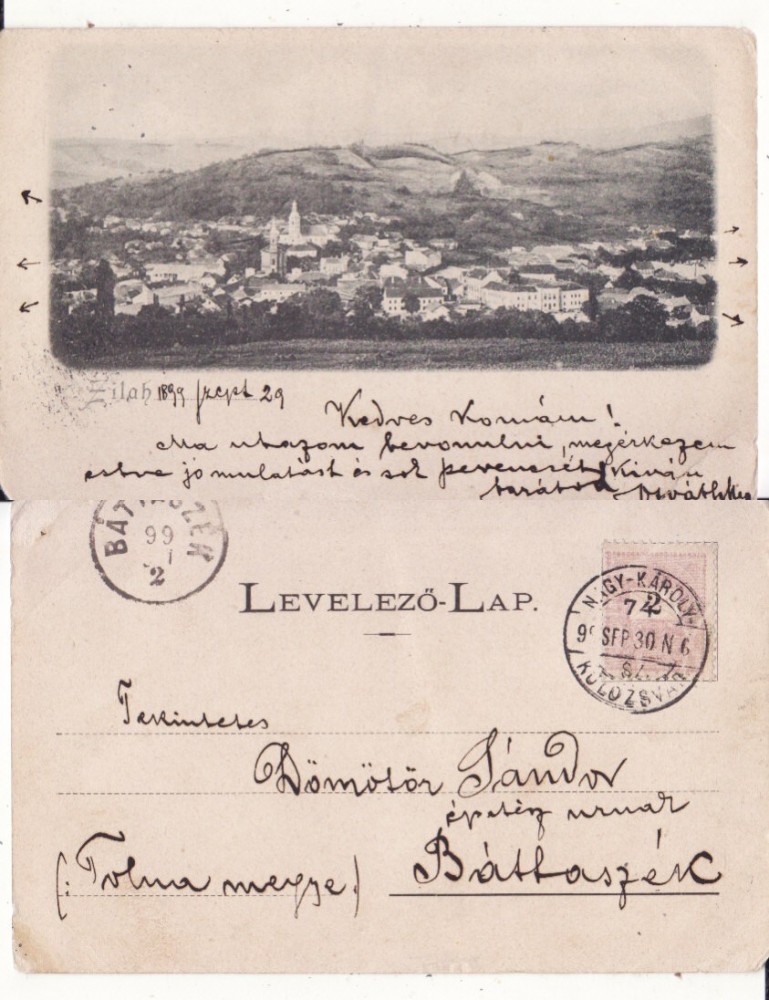 Zilah 1899 szept 29
Kedves Komám!
Ma utazom bevonulni, megérkezem
estve jó mulatást és sok
kiván
barátod
BÁTTASZÉK
99
2
LEVELEZŐ-LAP.
NAGY-KÁROLY-
74
2
99 SEP 30 N 6
SZ.
KOLOZSVÁR
Tekintetes
Dömötör Sándor
épitész urnak
(: Tolna megye.)
Báttaszék